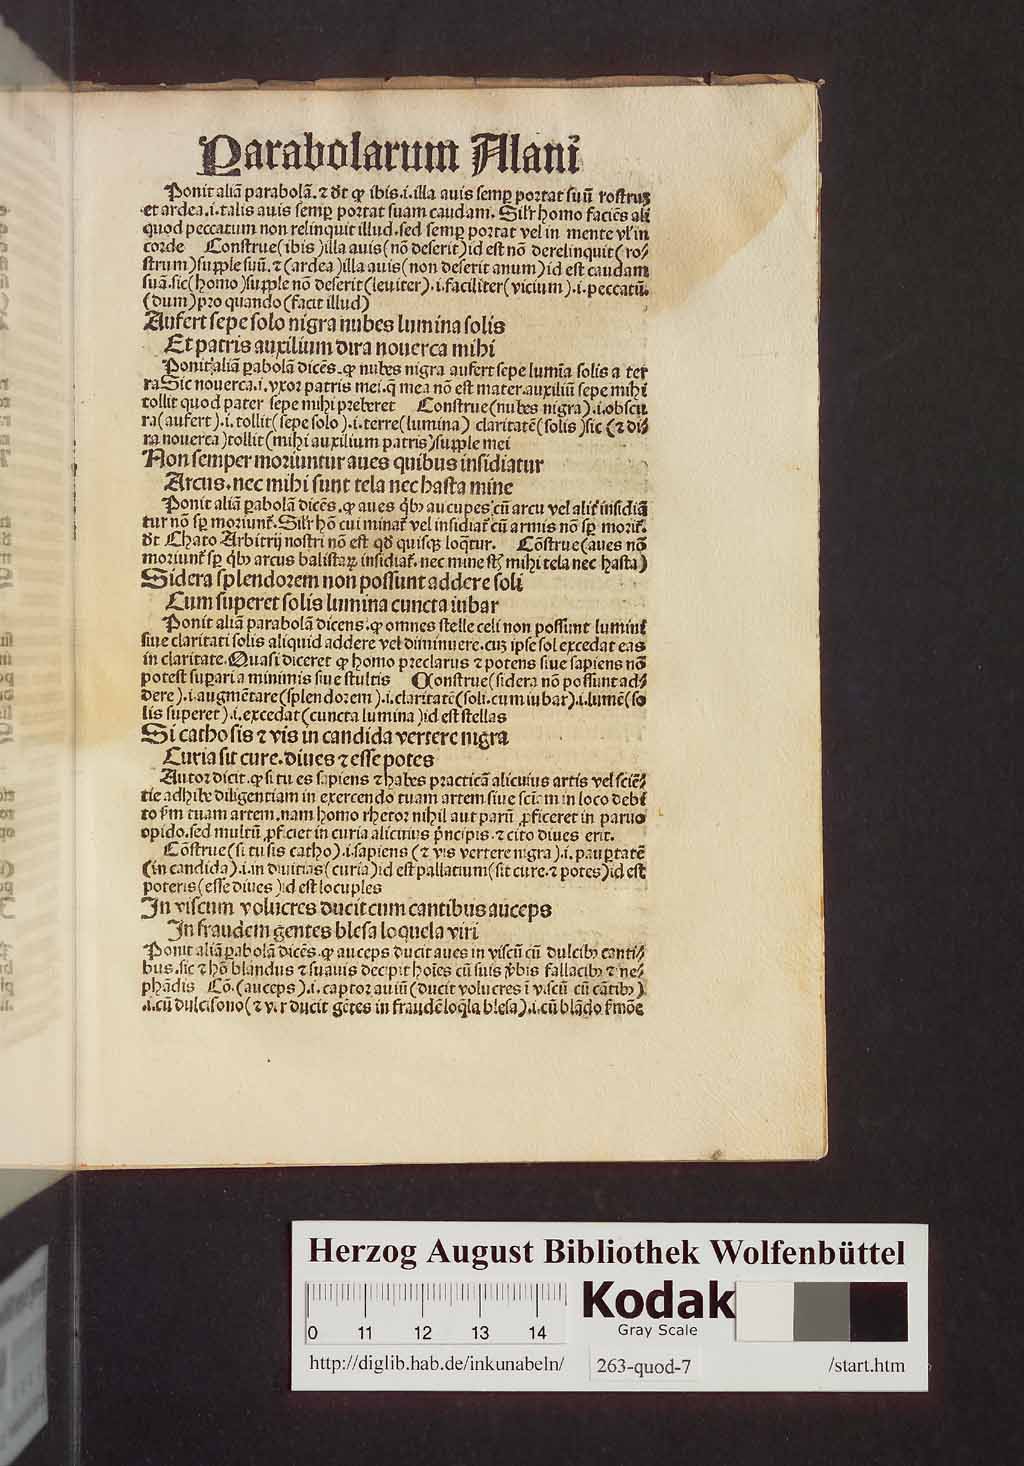 Parabolarum Alani
Ponit aliã parabolã. ⁊ dt̄ ꝙ ibis .i. illa auis semꝑ portat suũ rostrum
et ardea .i. talis auis semꝑ portat suam caudam. Sil'r homo faciẽs ali
quod peccatum non relinquit illud. sed semꝑ portat vel in mente vl' in
corde Construe (ibis) illa auis (nõ deserit) id est nõ derelinquit (ro⸗
strum) supple suũ. ⁊ (ardea) illa auis (non deserit anum) id est caudam
suã. sic (homo) supple nõ deserit (leuiter) .i. faciliter (vicium) .i. peccatũ.
(dum) pro quando (facit illud)
Aufert sepe solo nigra nubes lumina solis
Et patris auxilium dira nouerca mihi
Ponit aliã ꝑabolã dicẽs. ꝙ nubes nigra aufert sepe lumĩa solis a ter
ra Sic nouerca .i. vxor patris mei. q̃ mea nõ est mater. auxiliũ sepe mihi
tollit quod pater sepe mihi preberet Construe (nubes nigra) .i. obscu
ra (aufert) .i. tollit (sepe solo) .i. terre (lumina) claritatẽ (solis) sic (⁊ di⸗
ra nouerca) tollit (mihi auxilium patris) supple mei
Non semper moriuntur aues quibus insidiatur
Arcus. nec mihi sunt tela nec hasta mine
Ponit aliã ꝑabolã dicẽs. ꝙ aues q̃bꝫ aucupes cũ arcu vel alit' insidiã
tur nõ sꝑ moriunt̃. Sil'r hõ cui minat̃ vel insidiat̃ cũ armis nõ sꝑ morit̃.
dt̄ Chato Arbitrij nostri nõ est qd̃ quisqꝫ loq̃tur. Cõstrue (aues nõ
moriunt̃ sꝑ q̃bꝫ arcus balistaꝝ insidiat̃. nec mine st̃ mihi tela nec hasta)
Sidera splendorem non possunt addere soli
Cum superet solis lumina cuncta iubar
Ponit aliã parabolã dicens. ꝙ omnes stelle celi non possunt lumini
siue claritati solis aliquid addere vel diminuere. cuꝫ ipse sol excedat eas
in claritate. Quasi diceret ꝙ homo preclarus ⁊ potens siue sapiens nõ
potest supari a minimis siue stultis Construe (sidera nõ possunt ad⸗
dere) .i. augmẽtare (splendorem) .i. claritatẽ (soli. cum iubar) .i. lumẽ (so
lis superet) .i. excedat (cuncta lumina) id est stellas
Si catho sis ⁊ vis in candida vertere nigra
Curia sit cure. diues ⁊ esse potes
Autor dicit. ꝙ si tu es sapiens ⁊ habes practicã alicuius artis vel sciẽ⸗
tie adhibe diligentiam in exercendo tuam artem siue sciãm in loco debi
to s'm tuam artem. nam homo rhetor nihil aut parũ ꝓficeret in paruo
opido. sed multũ ꝓficiet in curia alicuius p̃ncipis. ⁊ cito diues erit.
Cõstrue (si tu sis catho) .i. sapiens (⁊ vis vertere nigra) .i. pauꝑtatẽ
(in candida) .i. in diuitias (curia) id est pallatium (sit cure. ⁊ potes) id est
poteris (esse diues) id est locuples
In viscum volucres ducit cum cantibus auceps
In fraudem gentes blesa loquela viri
Ponit aliã ꝑabolã dicẽs. ꝙ auceps ducit aues in viscũ cũ dulcibꝫ canti⸗
bus. sic ⁊ hõ blandus ⁊ suauis decipit hoĩes cũ suis v̾bis fallacibꝫ ⁊ ne⸗
phãdis Cõ. (auceps) .i. captor auiũ (ducit volucres ĩ viscũ cũ cãtibꝫ)
.i. cũ dulcisono (⁊ vir ducit gẽtes in fraudẽ loq̃la blesa) .i. cũ blãdo s'mõe
Herzog August Bibliothek Wolfenbüttel
0 11 12 13 14
Kodak
Gray Scale
http://diglib.hab.de/inkunabeln/ 263-quod-7 /start.htm